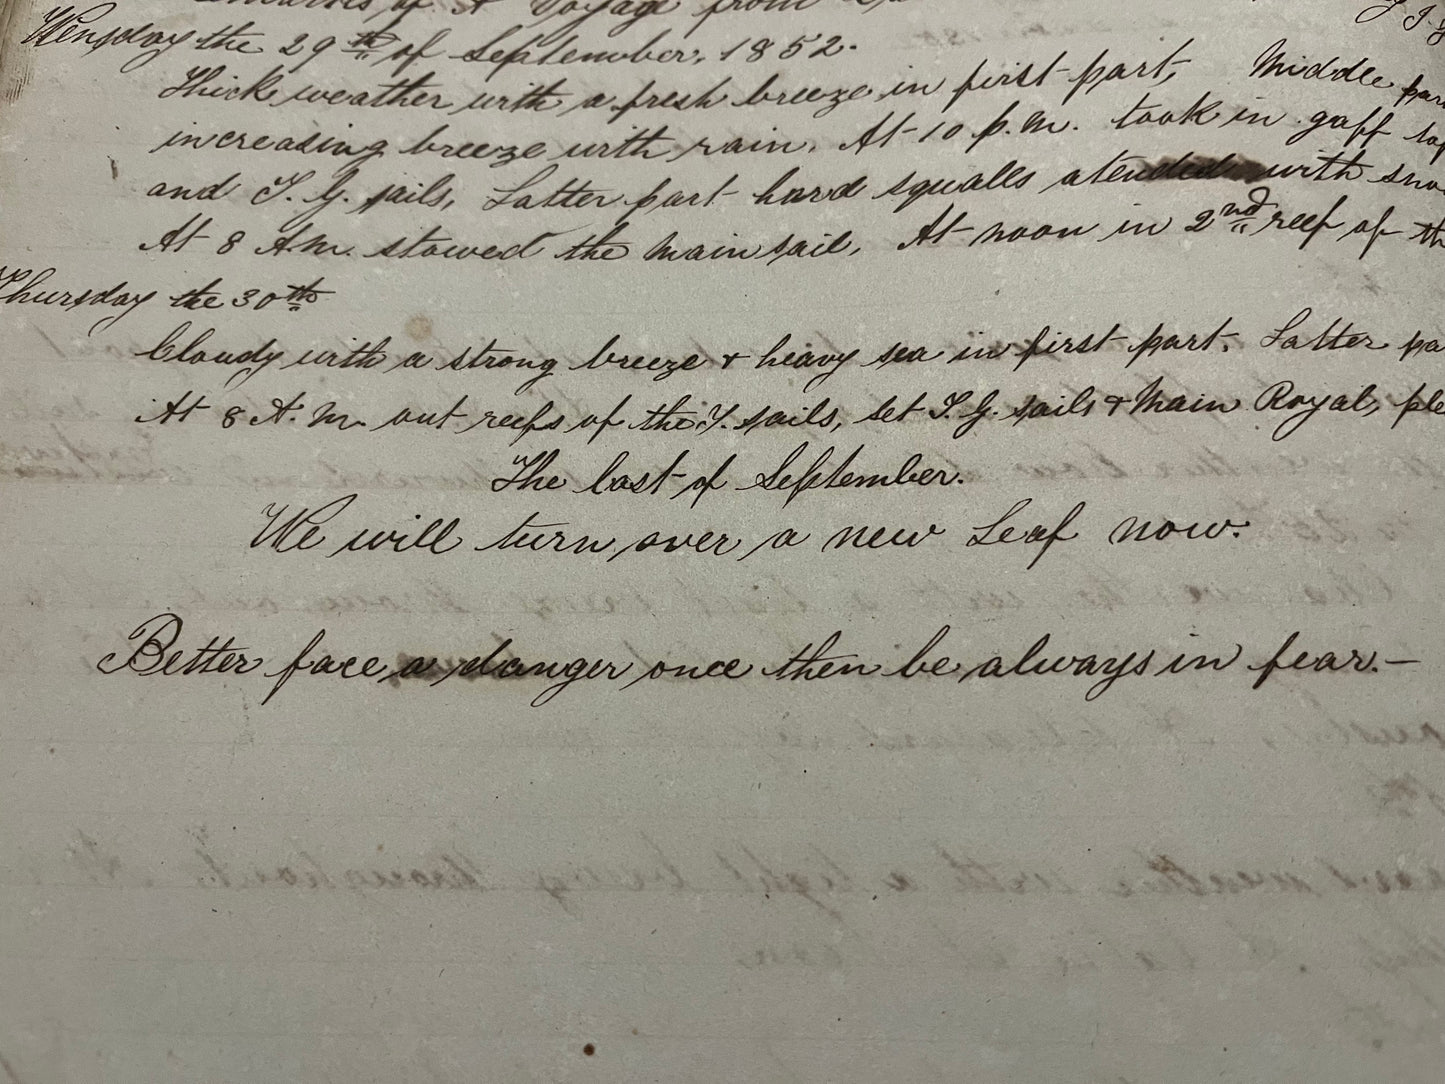 of A Voyage from
Wensday the 29th of September, 1852.
Thick weather with a fresh breeze in first part, Middle
increasing breeze with rain. At 10 p.m. took in gaff
and T. G. sails, Latter part hard squalls atended with
At 8 A.M. stowed the main sail, At noon in 2nd reef of
Thursday the 30th
Cloudy with a strong breeze & heavy sea in first part. Latter
At 8 A.M. out reefs of the T. sails, set T. G. sails & Main Royal,
The last of September.
We will turn over a new Leaf now.
Better face a danger once then be always in fear.—